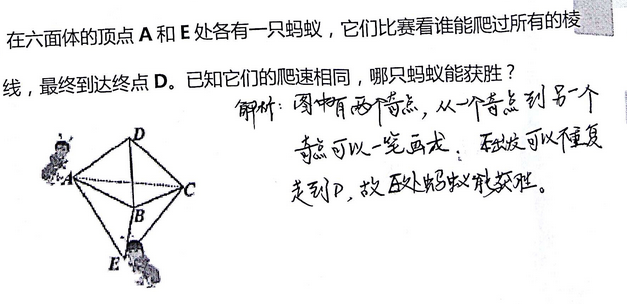 在六面体的顶点 A 和 E 处各有一只蚂蚁，它们比赛看谁能爬过所有的棱
线，最终到达终点 D。已知它们的爬速相同，哪只蚂蚁能获胜？
解析：图中有两个奇点，从一个奇点到另一个
奇点可以一笔画成：E出发可以不重复
走到D，故E处蚂蚁能获胜。
D
A
C
B
E